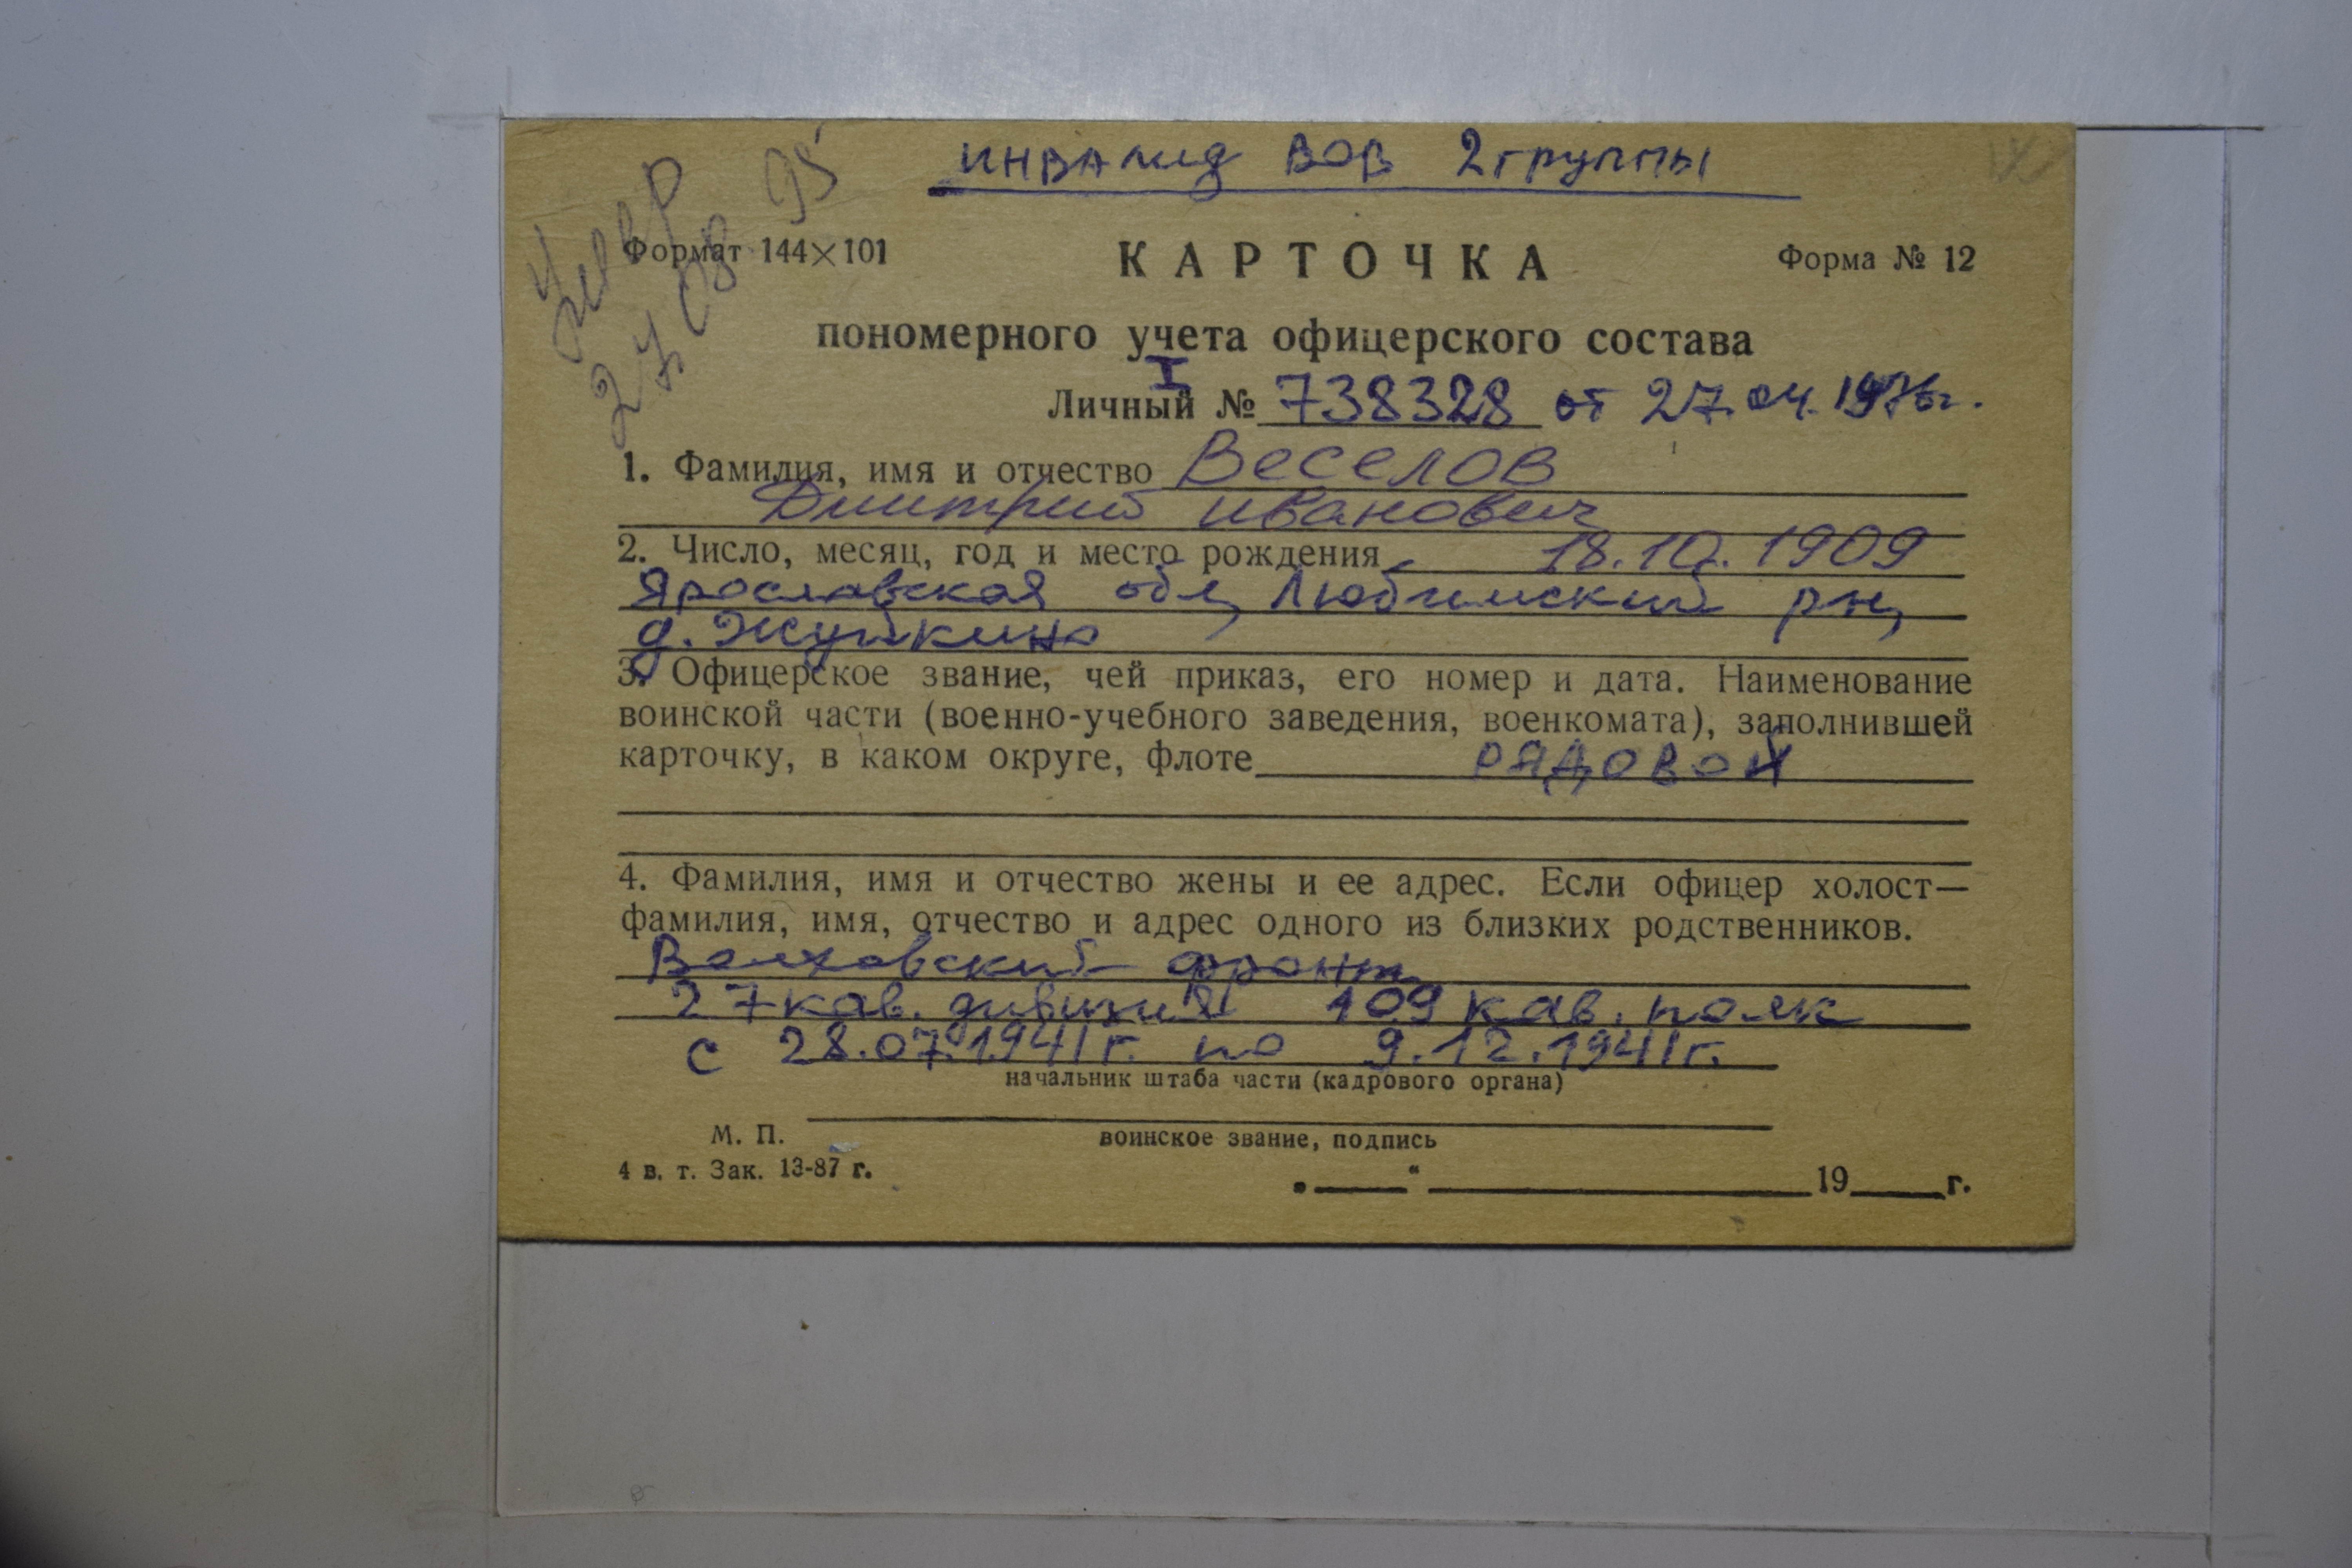 инвалид ВОВ 2 группы
умер
27 08 95
Формат 144×101
КАРТОЧКА
Форма № 12
пономерного учета офицерского состава
I
Личный № 738328 от 27.04.1976г.
1. Фамилия, имя и отчество Веселов
Дмитрий Иванович
2. Число, месяц, год и место рождения 18.10.1909
Ярославская обл, Любимский рн,
д. Жуйкино
3. Офицерское звание, чей приказ, его номер и дата. Наименование
воинской части (военно-учебного заведения, военкомата), заполнившей
карточку, в каком округе, флоте рядовой
4. Фамилия, имя и отчество жены и ее адрес. Если офицер холост—
фамилия, имя, отчество и адрес одного из близких родственников.
Волховский фронт
27 кав. дивизия 109 кав. полк
с 28.07.1941г. по 9.12.1941г.
начальник штаба части (кадрового органа)
М. П.
воинское звание, подпись
4 в. т. Зак. 13-87 г.
„ “ 19 г.